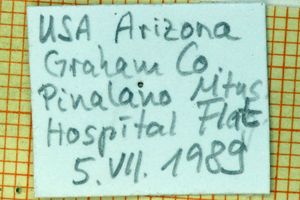 USA Arizona
Graham Co
Pinalano Mtns
Hospital Flat
5. VII. 1989